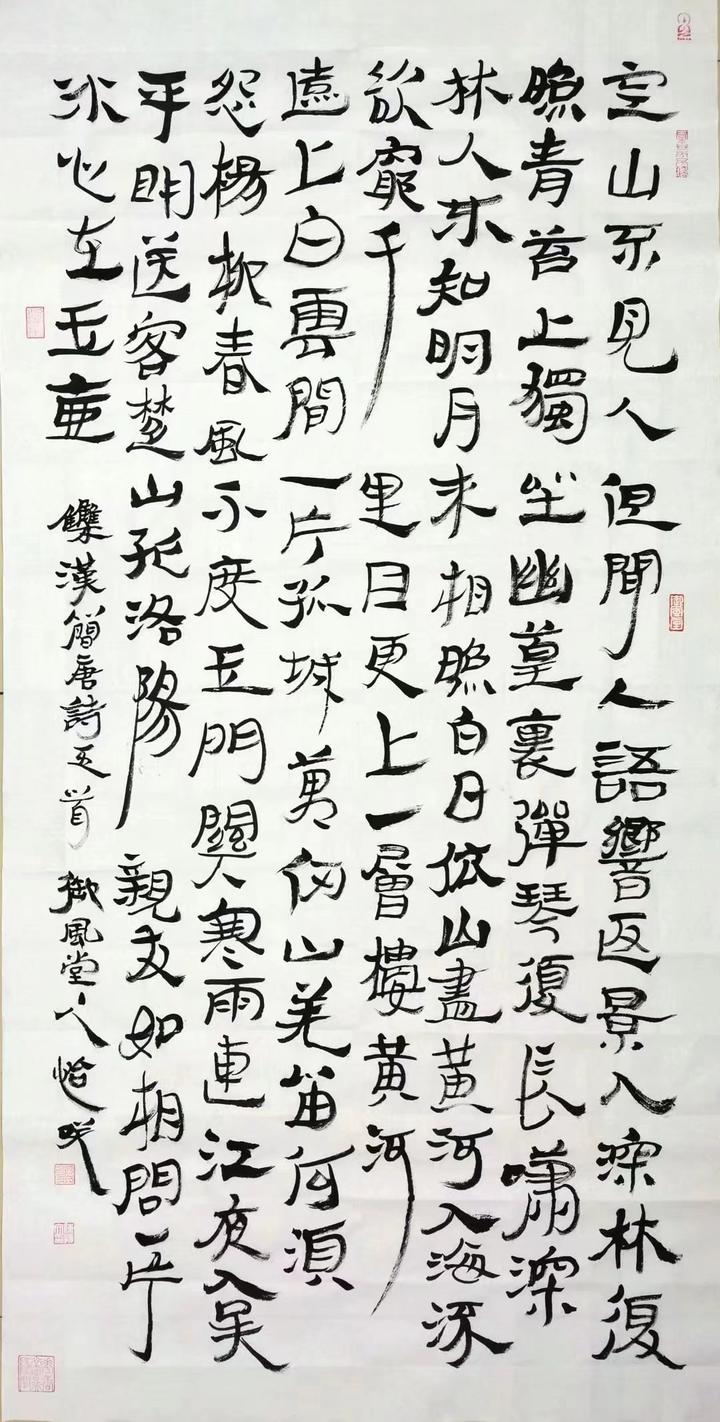 空山不見人但聞人語響返景入深林復
照青苔上獨坐幽篁裏彈琴復長嘯深
林人不知明月来相照白日依山盡黄河入海流
欲窮千里目更上一層樓黄河
遠上白雲間一片孤城萬仞山羌笛何須
怨楊柳春風不度玉門關寒雨連江夜入吴
平明送客楚山孤洛陽親友如相問一片
冰心在玉壺 集漢簡唐詩五首 御風堂人